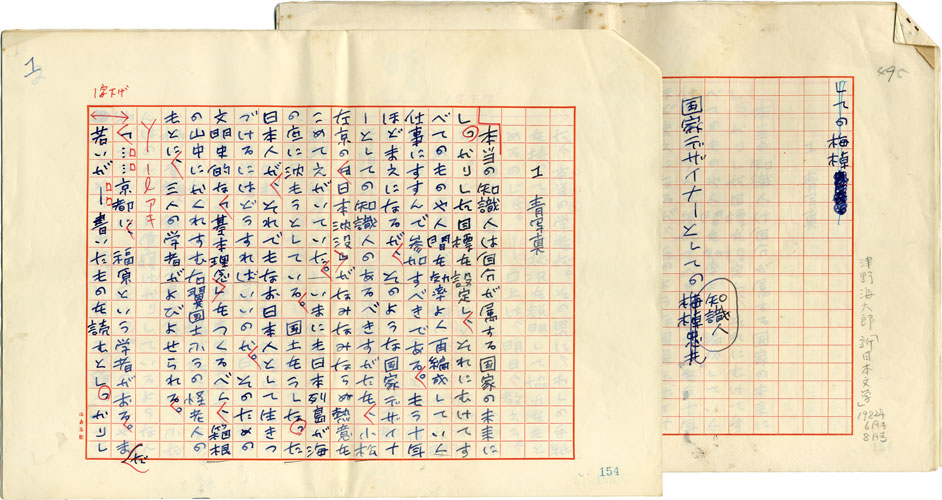 495
国家デザイナーとしての
知識人
津野海太郎「新日本文学」
1982年
6月号
8月号
1
1字下げ
1 青写真
本当の知識人は自分が属する国家の未来に
しっかりした目標を設定し、それにむけてす
べてのものや人間を効率よく再編成していく
仕事にすすんで参加すべきである。もう十年
ほどまえになるが、そのような国家デザイナ
ーとしての知識人のなるべきすがたを、小松
左京の『日本沈没』がなみなみならぬ熱意を
こめてえがいていた。いまにも日本列島が海
の底に沈もうとしている。国土をうしなった
日本人が、それでもなお日本人として生きつ
づけるにはどうすればいいのか。そのための
文明史的な基本理念をつくるべく、箱根
の山中にかくれすむ右翼国士ふうの怪老人の
もとに、三人の学者がよびよせられる。
1行アキ
「……京都に、福原という学者がおる。まだ
若いが――書いたものを読むとしっかりし
154